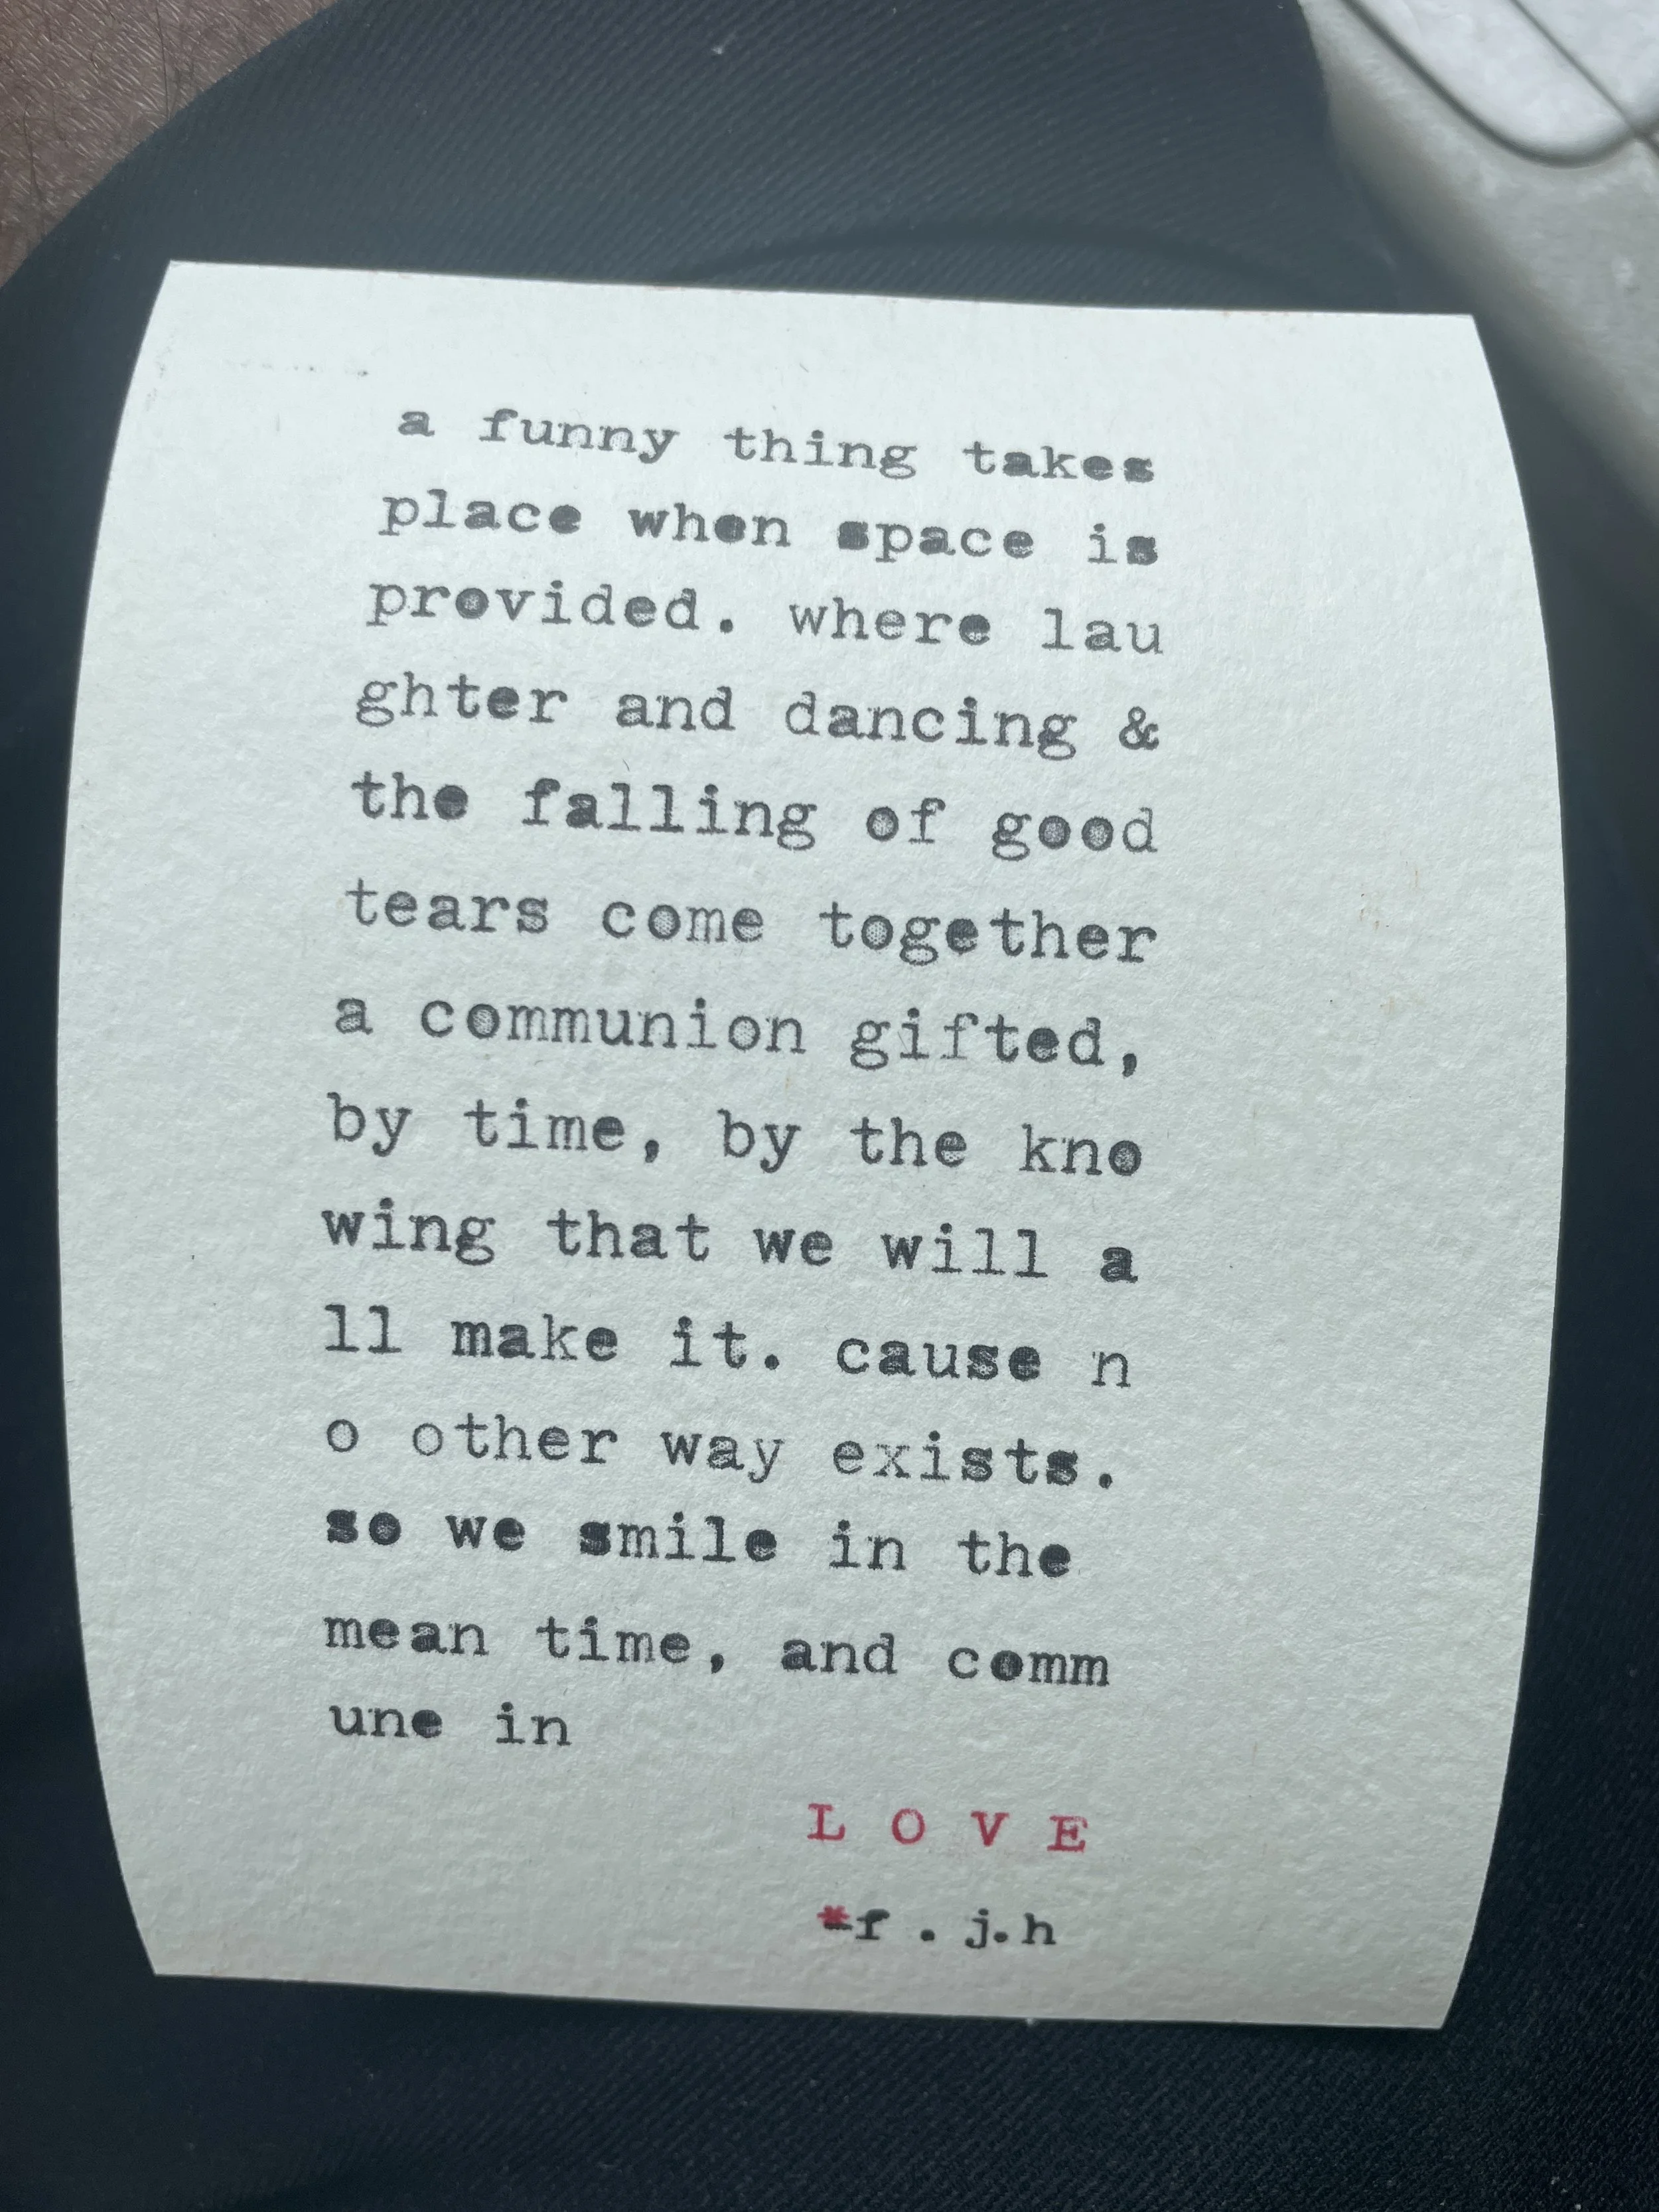 a funny thing takes
place when space is
provided. where lau
ghter and dancing &
the falling of good
tears come together
a communion gifted,
by time, by the kno
wing that we will a
ll make it. cause n
o other way exists.
so we smile in the
mean time, and comm
une in
L O V E
*f . j.h